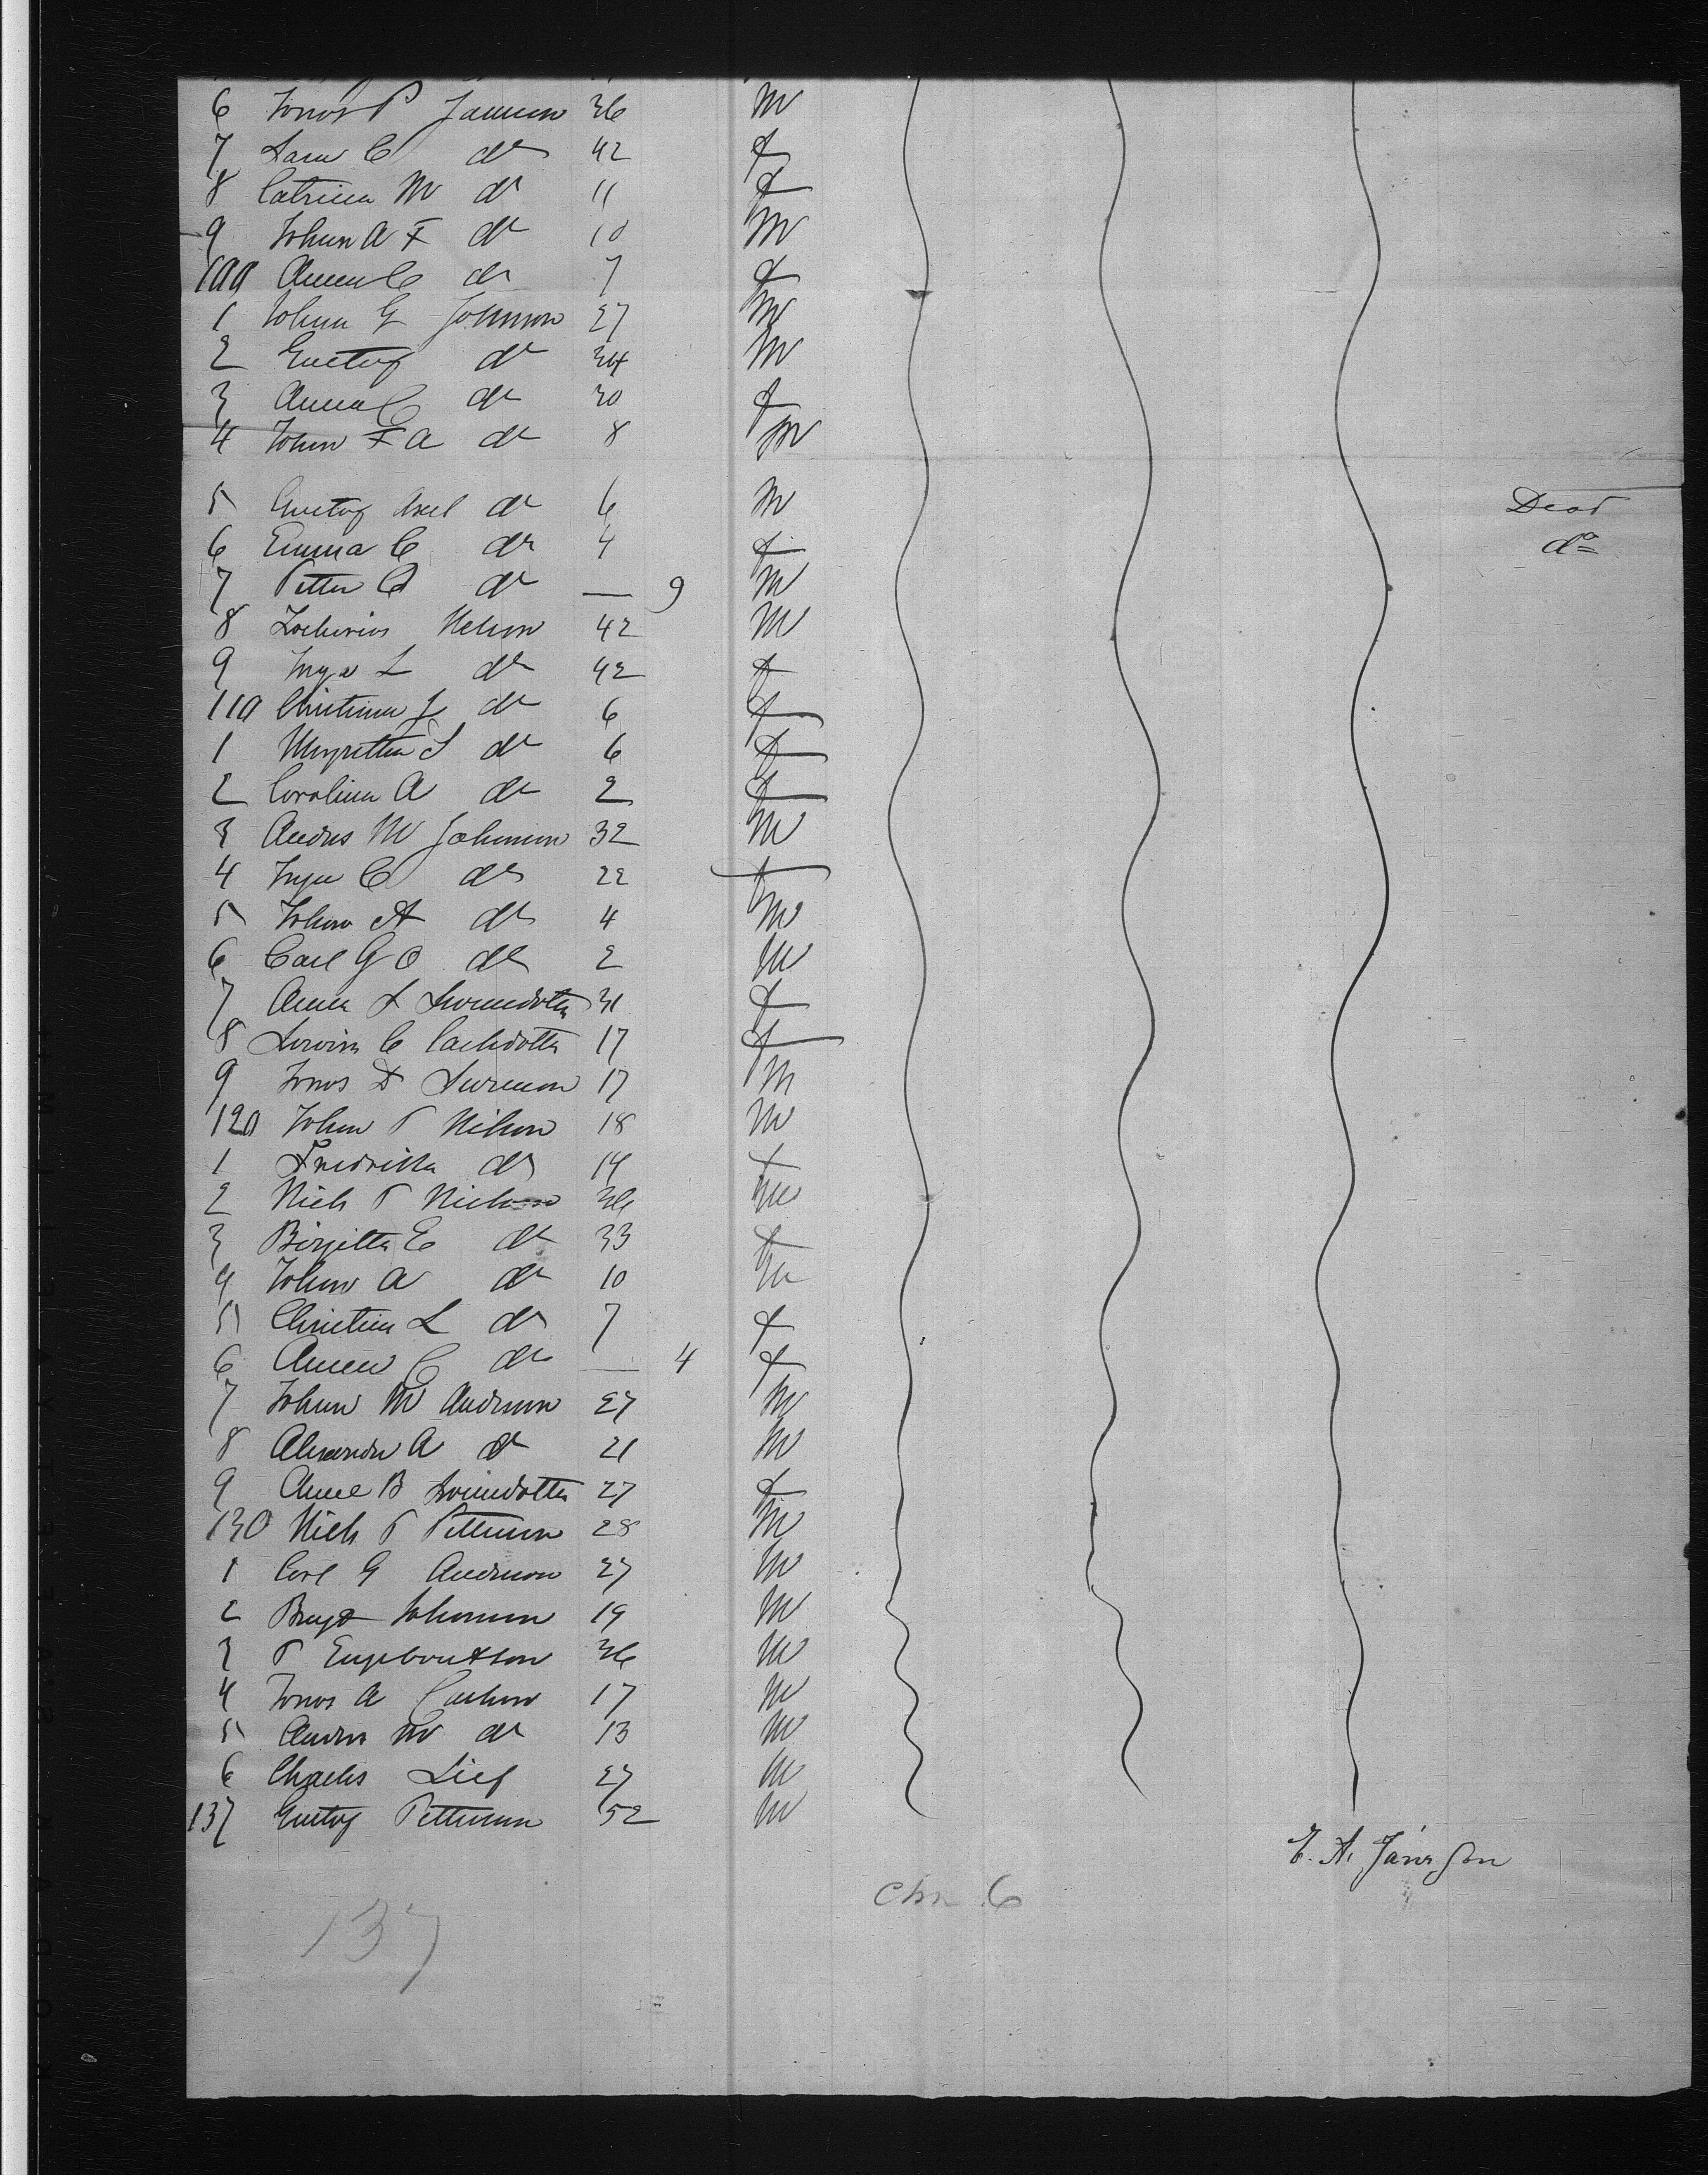 6 Jonas P Jannson 36 m
7 Sara C do 42 f
8 Catrina M do 11 f
9 Johan A F do 10 m
100 Anna C do 7 f
1 Johan G Johnson 27 m
2 Gustaf do 34 m
3 Anna C do 30 f
4 Johan F A do 8 m
5 Gustaf Axel do 6 m Dead
6 Emma C do 4 f do
7 Petter A do — 9 m
8 Zacharias Nelson 42 m
9 Inga L do 42 f
110 Christina J do 6 f
1 Margretha S do 6 f
2 Carolina A do 2 f
3 Andrs M Johanson 32 m
4 Inga C do 22 f
5 Johan A do 4 m
6 Carl G O do 2 m
7 Anna L Svensdotter 31 f
8 Lovisa C Carlsdotter 17 f
9 Jonas D Svenson 17 m
120 Johan P Nilson 18 m
1 Fredrika do 14 f
2 Niels P Nielson 36 m
3 Birgitta E do 33 f
4 Johan A do 10 m
5 Christina L do 7 f
6 Anna C do — 4 f
7 Johan M Anderson 27 m
8 Alexander A do 21 m
9 Anne B Svensdotter 27 f
130 Niels P Petterson 28 m
1 Carl G Anderson 27 m
2 Johannson 19 m
3 P 36 m
4 Jonas A Carlson 17 m
5 Andrs M do 13 m
6 Charles 27 m
137 Gustaf Petterson 52 m
E. A.
6
137